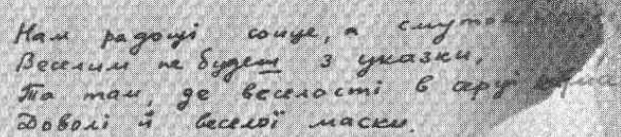 Нам радощі сонце, а смуток
Веселим не будеш з указки,
Та там, де веселості в серці нема
Доволі й веселої маски.